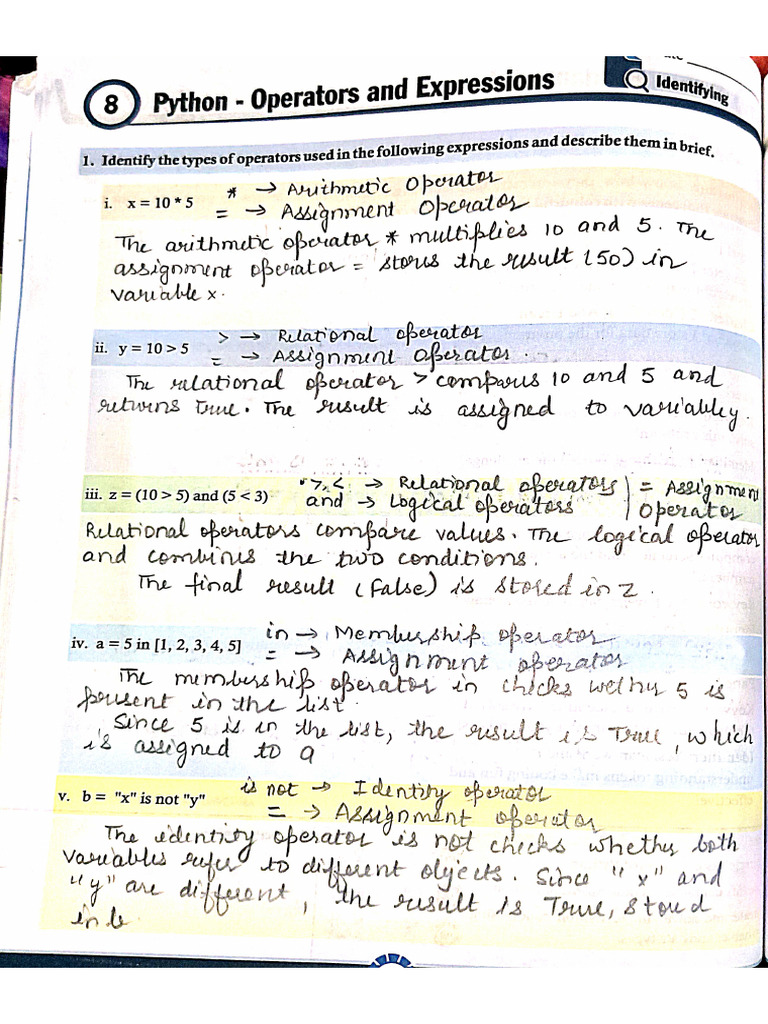 Identifying
8 Python - Operators and Expressions
1. Identify the types of operators used in the following expressions and describe them in brief.
i. x = 10 * 5 * → Arithmetic Operator
= → Assignment Operator
The arithmetic operator * multiplies 10 and 5. The
assignment operator = stores the result (50) in
variable x.
ii. y = 10 > 5 > → Relational operator
= → Assignment operator.
The relational operator > compares 10 and 5 and
returns True. The result is assigned to variable y.
iii. z = (10 > 5) and (5 < 3) >, < → Relational operators | = Assignment
and → Logical operators | Operator
Relational operators compare values. The logical operator
and combines the two conditions.
The final result (False) is stored in z.
iv. a = 5 in [1, 2, 3, 4, 5] in → Membership operator
= → Assignment operator
The membership operator in checks wether 5 is
present in the list.
Since 5 is in the list, the result is True, which
is assigned to a
v. b = "x" is not "y" is not → Identity operator
= → Assignment operator
The identity operator is not checks whether both
variables refer to different objects. Since "x" and
"y" are different, the result is True, stored
in b